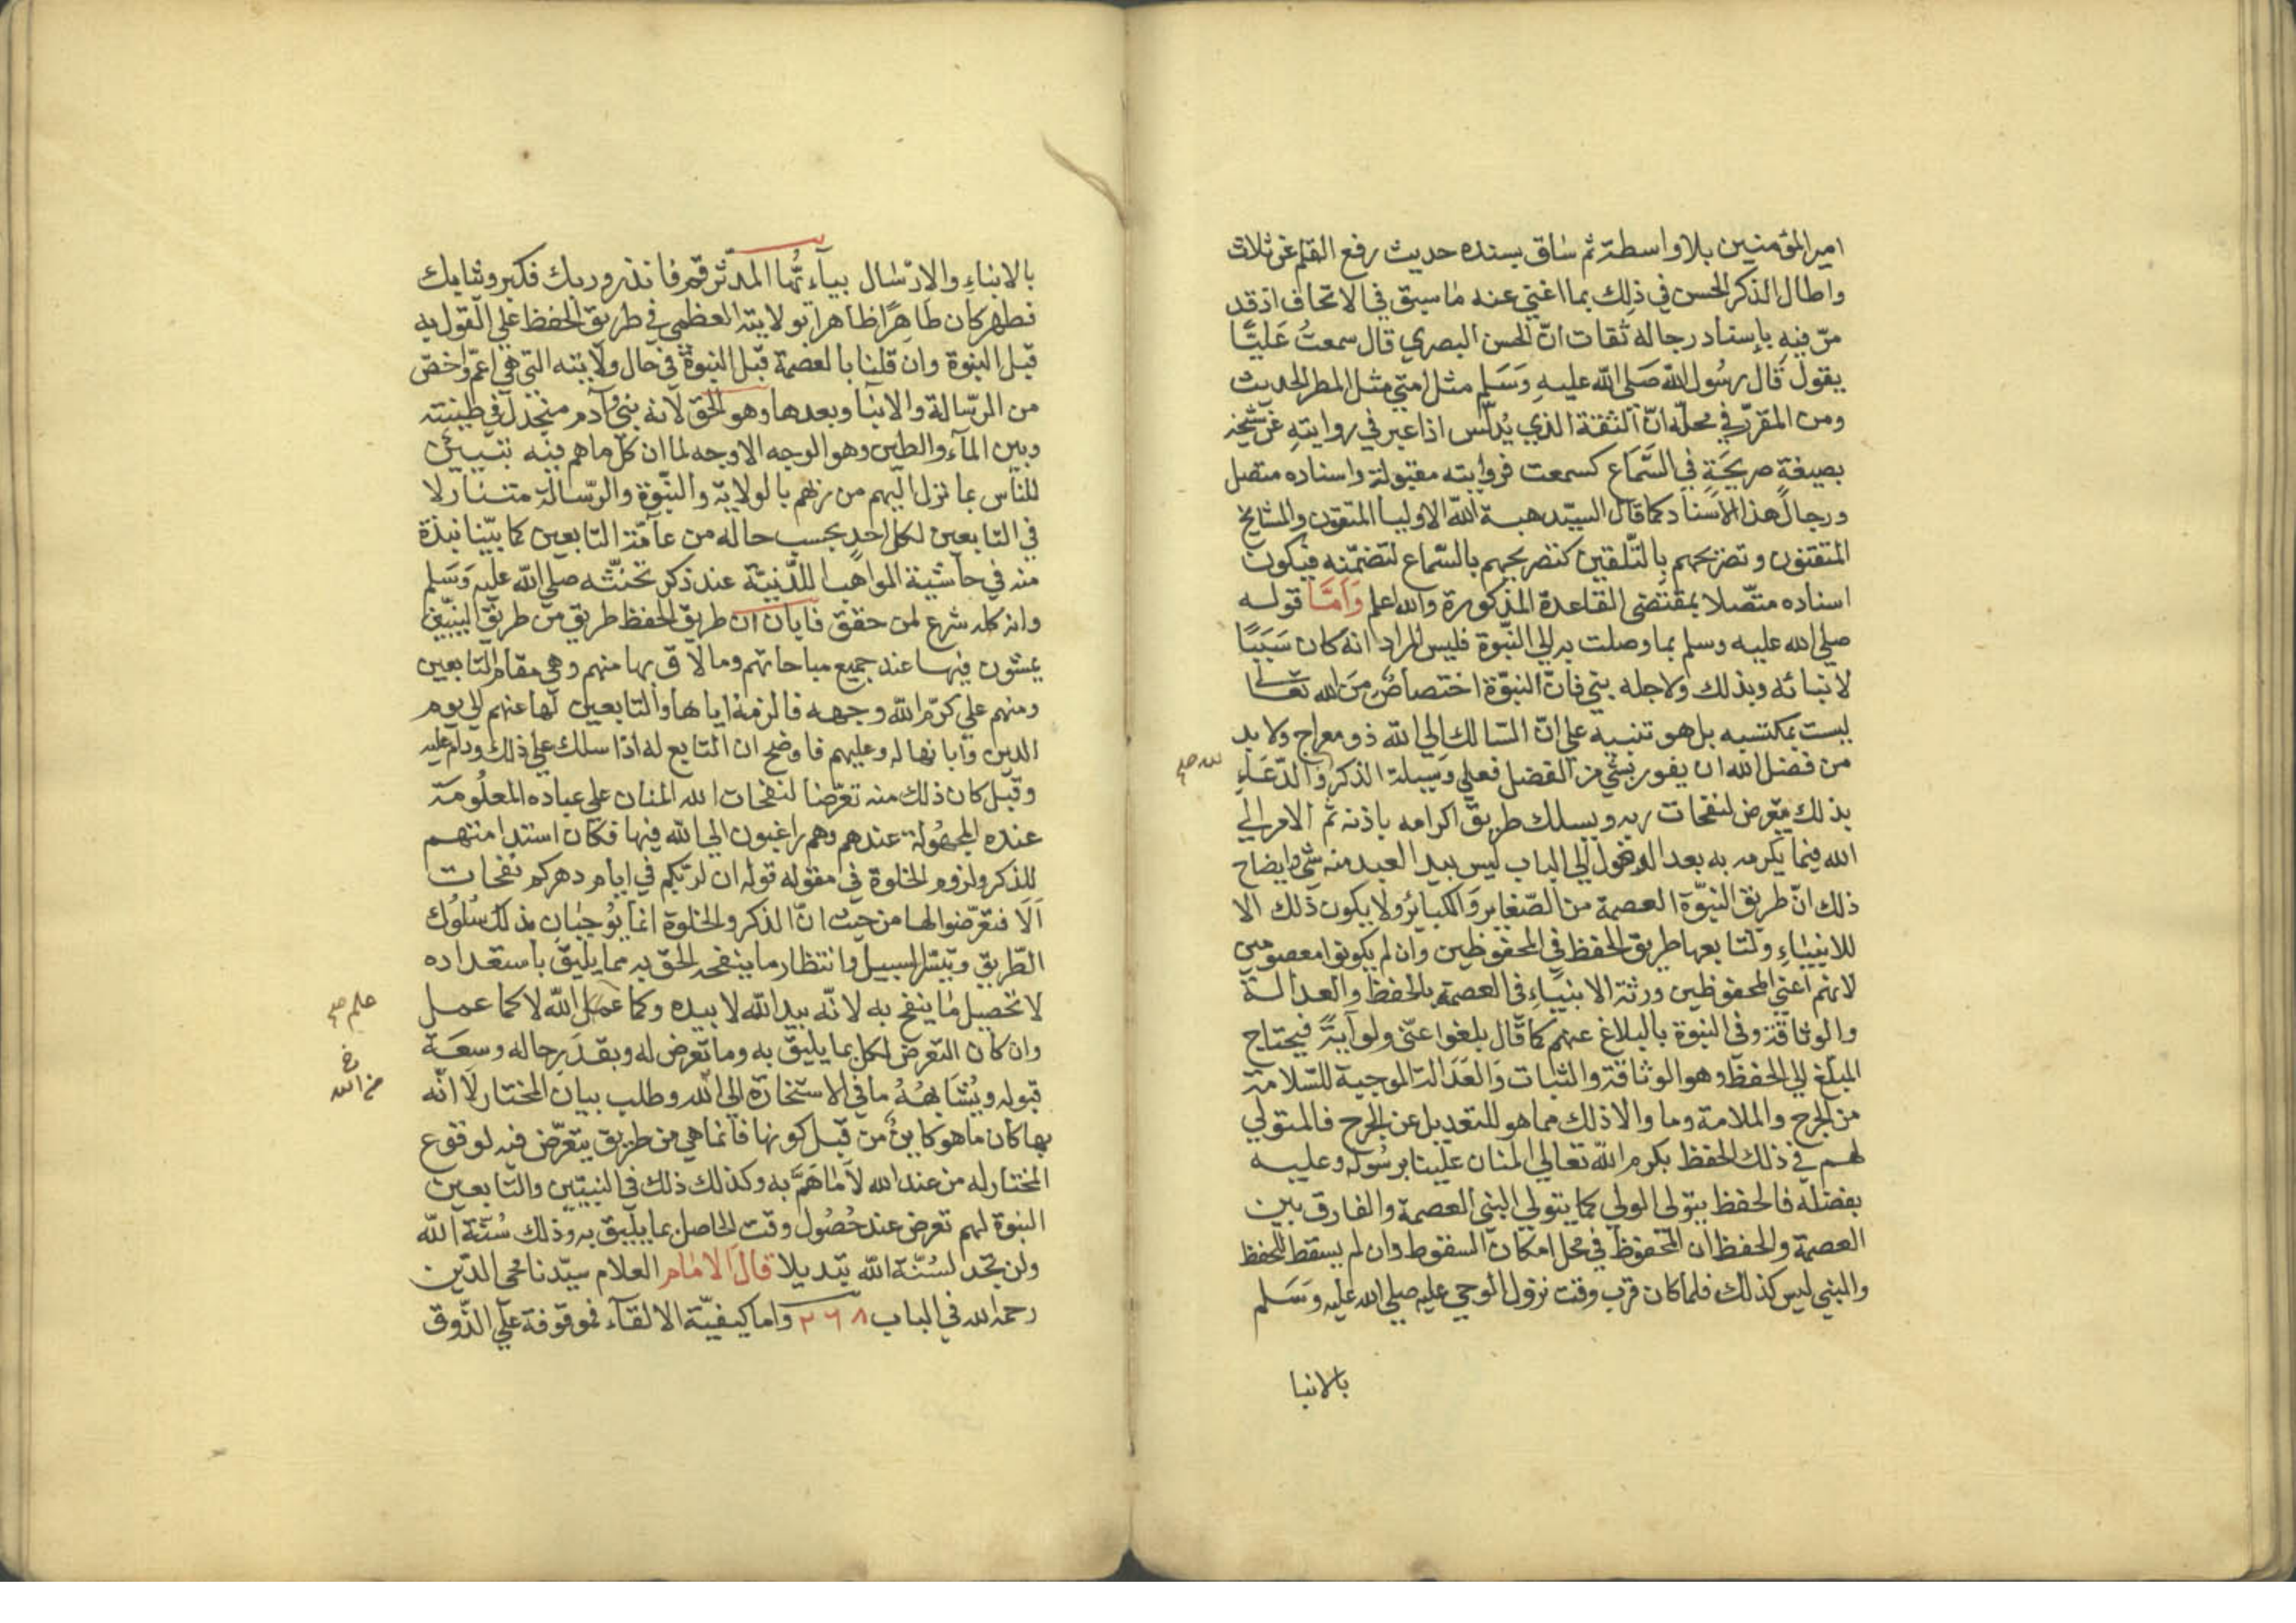 امير المؤمنين بلا واسطة ثم ساق بسنده حديث رفع القلم عن ثلاث
واطال الذكر الحسن في ذلك بما اغني عنه ما سبق في الاتحاف اذ قد
مرّ فيه بإسناد رجاله ثقات انّ الحسن البصري قال سمعتُ عَليًّا
يقول قال رسُول الله صَلى الله عليه وَسَلم مثل امتي مثل المطر الحديث
ومن المقرّر في محلّه انّ الثقة الذي يُدلّس اذا عبر في روايتهِ عن شيخه
بصيغةٍ صريحَةٍ في السَّمَاع كسمعت فروايته مقبولة واسناده متصل
ورجال هذا الاسناد كما قال السيّد هبة الله الاوليا المتقون والمشايخ
المتقنون وتصريحهم بالتّلقين كتصريحهم بالسّماع لتضمّنه فيكون
اسناده متصّلا بمقتضى القاعدة المذكورة والله اعلم وَأمَّا قوله
صلي الله عليه وسلم بما وصلت به الي النبّوة فليس المراد انه كان سَبَبًا
لانبائه وبذلك ولاجله نبي فانّ النبوّة اختصاصٌ منَ الله تعالي
ليست بمكتسبه بل هو تنبيه علي انّ السّالك الي الله ذو معراج ولا بد
من فضل الله ان يفوز بشئ من الفضل فعلي وَسيلة الذكر والدّعَاءِ
بذلك يتعرض لنفحات ربه ويسلك طريق اكرامه باذنه ثم الامر الي
الله فيما يكرمه به بعد الدخول الي الباب ليس بيد العبد منه شئ وايضاح
ذلك انّ طريق النبوّة العصمة من الصّغاير والكبائر ولا يكون ذلك الا
للانبيَاءِ ولتابعها طريق الحفظ في المحفوظين وان لم يكونوا معصومين
لانهم اعني المحفوظين ورثة الانبياءِ في العصمة بالحفظ والعدالة
والوثاقة وفى النبوة بالبلاغ عنهم كما قال بلغوا عنّى ولو آيةً فيحتاج
المبلّغ الي الحفظ وهو الوثاقة والثبات وَالعَدَالة الموجبة للسّلامة
من الجرح والملامة وما والا ذلك مما هو للتعديل عن الجرح فالمتولي
لهم في ذلك الحفظ بكرم الله تعالي المنان علينا برسُوله وعليه
بفضله فالحفظ يتولى الولي كما يتولي النبي العصمة والفارق بين
العصمة والحفظ ان المحفوظ في محل امكان السقوط وان لم يسقط للحفظ
والنبي ليس كذلك فلما كان قرب وقت نزول الوحي عليه صلي الله عليه وسَلم
بالانبا
بالانباءِ والارسَال بيآءيّها المدّثر قم فانذر وربك فكبر وثيابك
فطهر كان طاهِرًا ظاهرا بولايته العظمي في طريق الحفظ علي القول به
قبل النبوة وان قلنا بالعصمة قبل النبوة في حال ولايته التي هي اعمّ واخصّ
من الرّسالة والانبآ وبعدها وهو الحق لانه نبي وآدم منجدل في طينته
وبين المآء والطين وهو الوجه الاوجه لما ان كلّ ما هم فيه تبيين
للنّاس بما نزل اليهم من ربّهم بالولاية والنبّوة والرّسالة متنازلا
في التابعين لكل احدٍ بحسب حاله من عآمّة التابعين كما بيّنا نبذة
منه في حاشية المواهب اللّدنيّة عند ذكر تحنّثه صلي الله عليه وَسَلم
وانه كله شرع لمن حقق فابان ان طريق الحفظ طريق من طريق النبيّين
يمشون فيها عند جميع مباحاتهم وما لاق بها منهم وهي مقام التابعين
ومنهم علي كرّم الله وجهه فالزمه اياها والتابعين لها عنهم الي يوم
الدين وابانها له وعليهم فاوضح ان التابع له اذا سلك علي ذلك ودام عليه
وقبل كان ذلك منه تعرّضا لنفحات الله المنان علي عباده المعلُومَة
عنده المجهُولة عندهم وهم راغبون الي الله فيها فكان استدا منهم
للذكر ولزوم الخلوة في مقوله قوله ان لربّكم في ايام دهركم نفحات
اَلَا فتعرّضوا لها من حيث انّ الذكر والخلوة انما يُوجبَانِ بذلك سُلوُك
الطّريق وتيسّر السبيل وانتظار ما ينفحه الحق به مما يليق باستعداده
لا تحصيل مَا ينفح به لانّه بيد الله لا بيده وكما عمل الله لا كما عمل
علم صح
وان كان التعرض لكل بما يليق به وما تعرض له وبقدَر حاله وسعَة
قبوله ويُشَابهُهُ ما في الاستخارة الي الله وطلب بيان المختار لا انّه
خ
من الله
بها كان ما هو كاين من قبل كونها فانما هي من طريق يتعرّض فيه لوقوع
المختار له من عند الله لا مَا هَمَّ به وكذلك ذلك في النبيّين والتابعين
النبوة لهم تعرض عند حُصُول وقت الحاصل بما يليق به وذلك سُنّة الله
ولن تجد لسُنّة الله تبديلا قال الامَام العلام سيّدنا محي الدّين
رحمه الله في الباب ٢٦٨ واما كيفيّة الالقآء فموقوفة علي الذّوق